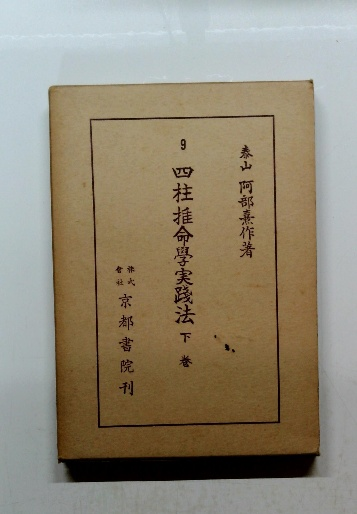 泰山 阿部熹作著
9 四柱推命學実踐法 下巻
株式會社 京都書院刊